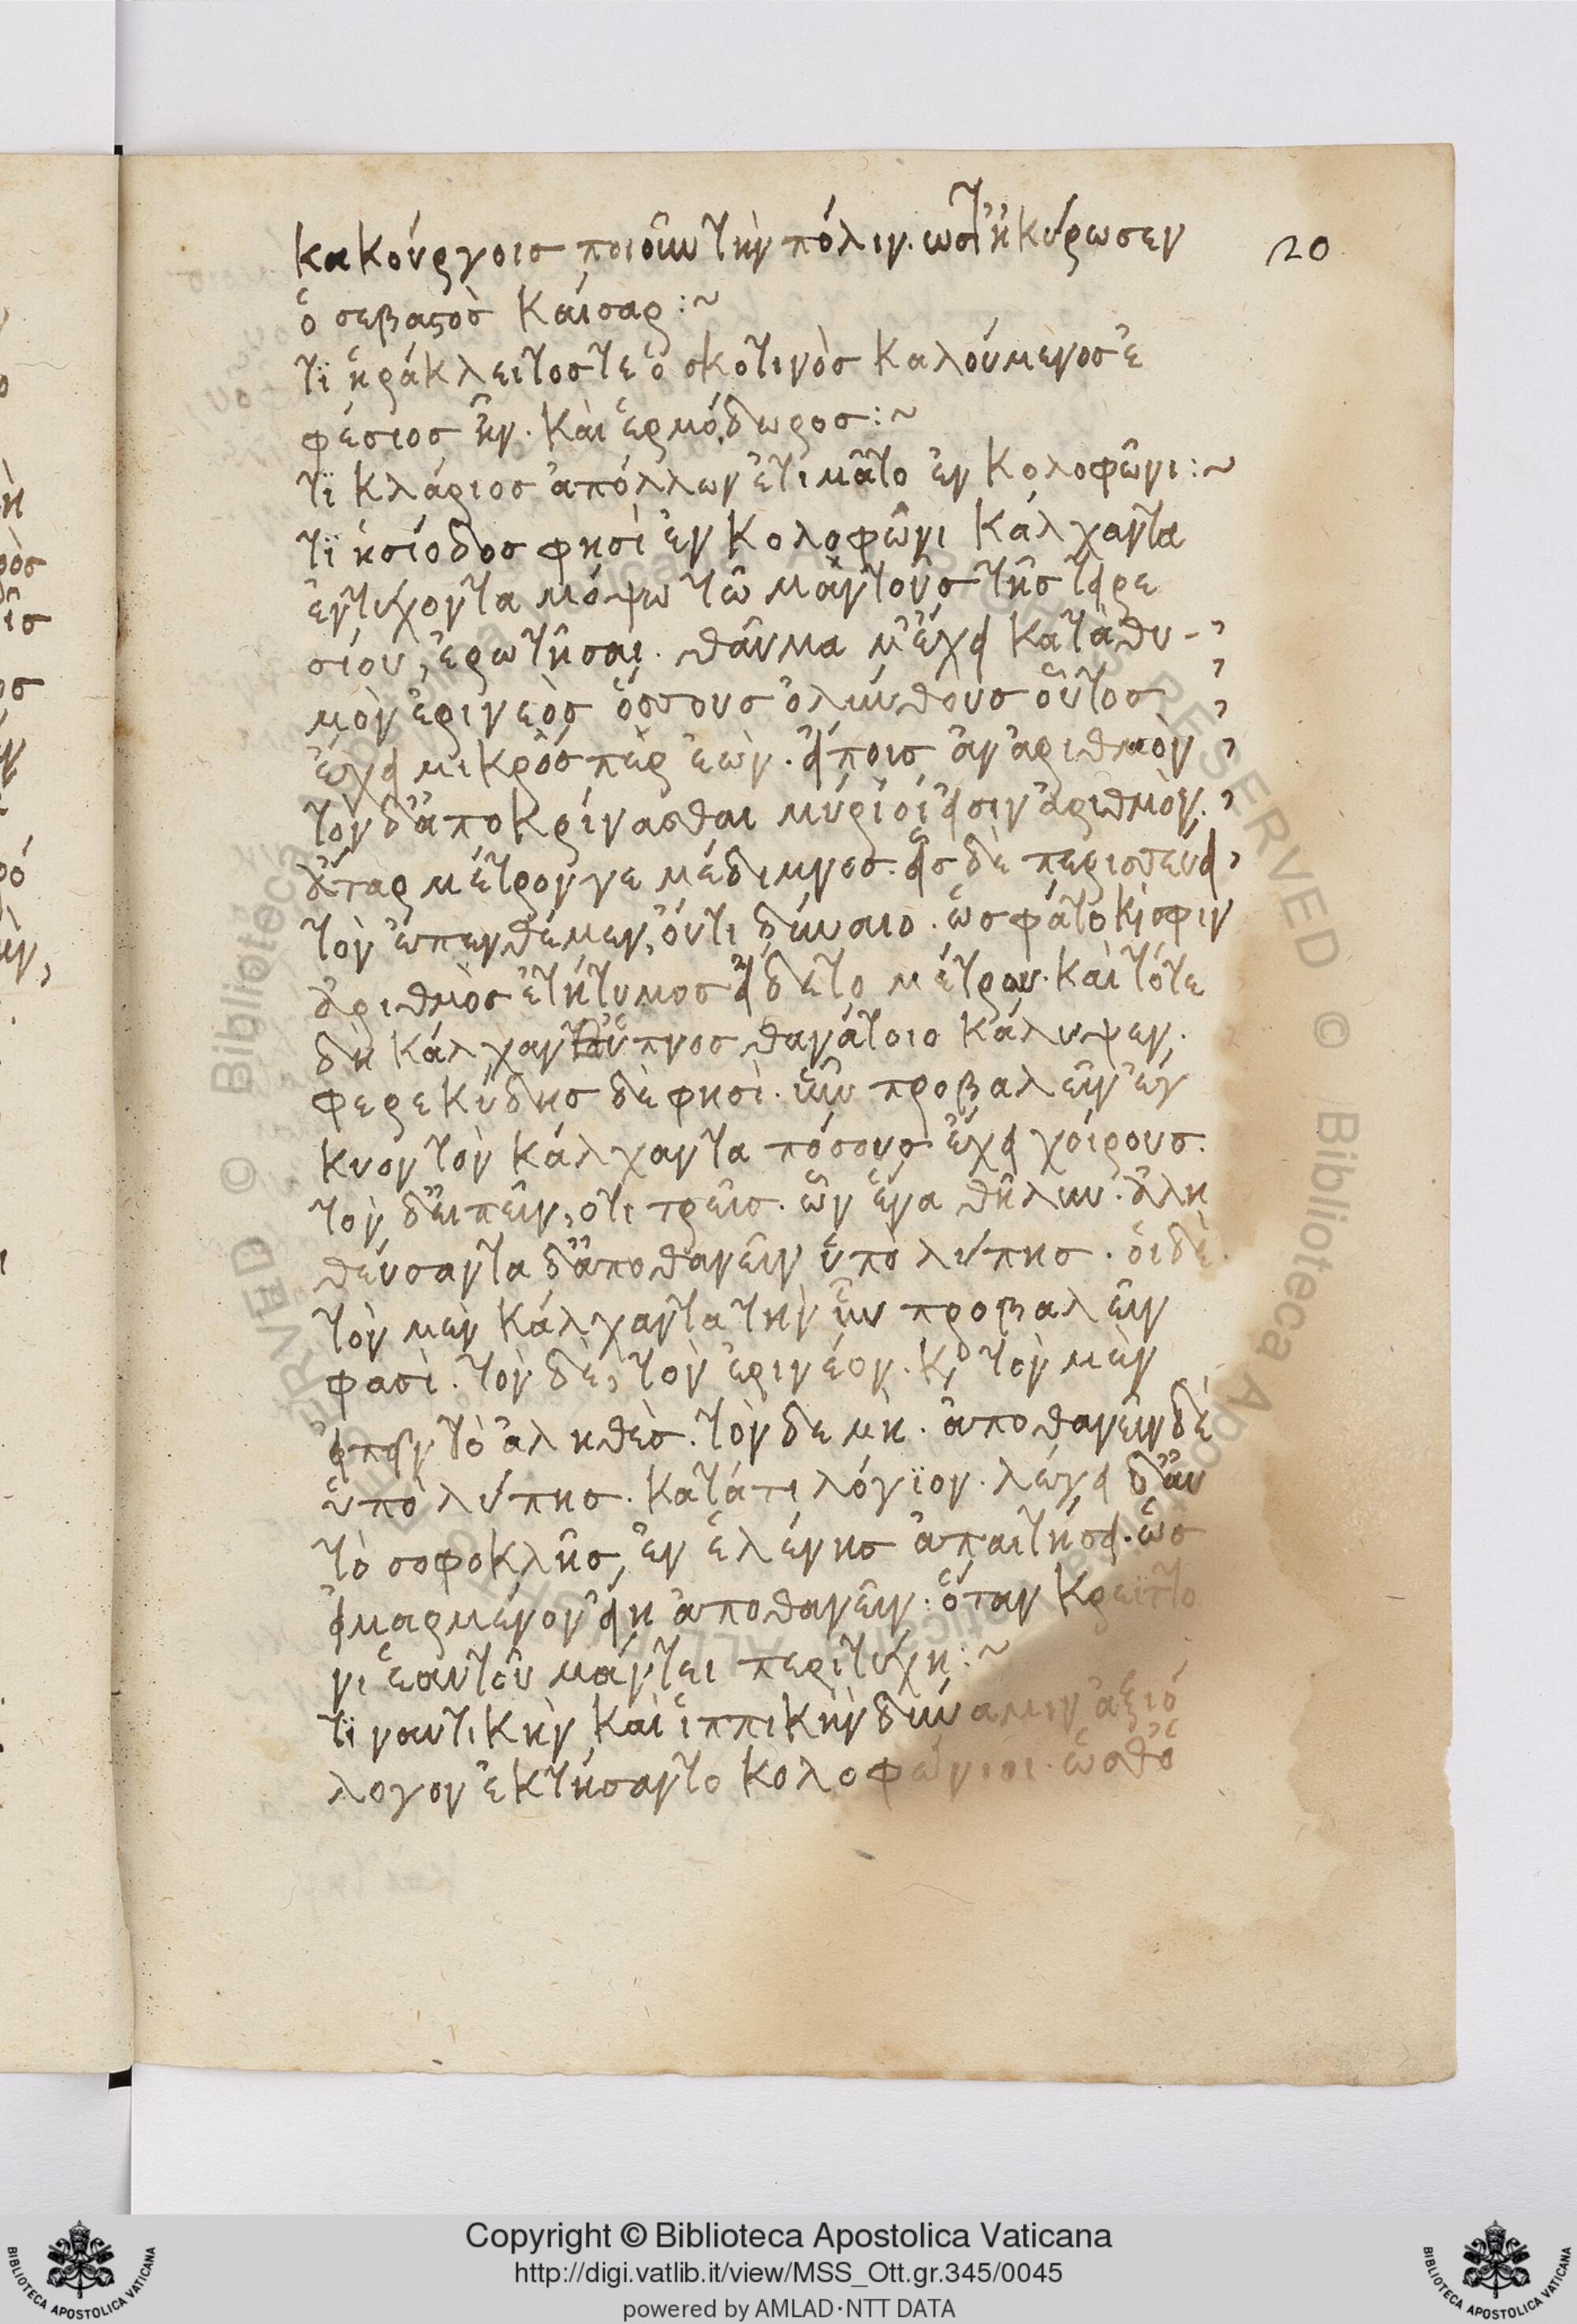 κακούργοις ποιοῦν τὴν πόλιν. ὥστ' ἠκύρωσεν
20
ὁ σεβαστὸς Καίσαρ :~
τϊ ἡράκλειτοστε ὁ σκοτινὸς καλούμενος ἐ
φέσιος ἦν. καὶ ἑρμόδωρος :~
τϊ κλάριος ἀπόλλων ἐτιμᾶτο ἐν κολοφῶνι :~
τϊ ἡσίοδος φησὶ ἐν κολοφῶνι κάλχαντα
ἐντυχόντα μόψω τῶ μαντοῦς τῆς τειρε
σίου, ἐρωτῆσαι. θαῦμα μ' ἔχει κατὰ θυ-
μὸν ἐρινεὸς ὅσσους ὀλύνθους οὗτος
ἔχει μικρόσπερ ἐὼν. εἴποις ἂν ἀριθμὸν
τὸν δ' ἀποκρίνασθαι μύριοί εἰσιν ἀριθμὸν.
ἀτὰρ μέτρον γε μέδιμνος. εἷς δὲ περισσεύει
τὸν ἐπενθέμεν, οὔτι δύναιο. ὣς φάτο κ' σφιν
ἀριθμὸς ἐτήτυμος εἴδετο μέτρου. καὶ τότε
δὴ κάλχανθ' ὕπνος θανάτοιο κάλυψεν.
φερεκύδης δὲ φησὶ. ὗν προβαλεῖν ἔγ
κυον τὸν κάλχαντα πόσους ἔχει χοίρους.
τὸν δ' εἰπεῖν, ὅτι τρεῖς. ὧν ἕνα θῆλυν. ἀλη
θεύσαντα δ' ἀποθανεῖν ὑπὸ λύπης. οἱ δὲ
τὸν μὲν κάλχαντα τὴν ὗν προβαλεῖν
φασὶ. τὸν δὲ, τὸν ἐρινέον. κ' τὸν μὲν
εἰπεῖν τὸ ἀληθὲς. τὸν δὲ μὴ. ἀποθανεῖν δὲ
ὑπὸ λύπης. κατά τι λόγϊον. λέγει δ' αὐ
τὸ σοφοκλῆς, ἐν ἑλένης ἀπαιτήσει. ὡς
εἱμαρμένον εἴη ἀποθανεῖν. ὅταν κρείττο
νι ἑαυτοῦ μάντει περιτύχη :~
τϊ ναυτικὴν καὶ ἱππικὴν δύναμιν ἀξιό
λογον ἐκτήσαντο κολοφώνιοι. ὥσθ' ὅ
Copyright © Biblioteca Apostolica Vaticana
http://digi.vatlib.it/view/MSS_Ott.gr.345/0045
powered by AMLAD·NTT DATA